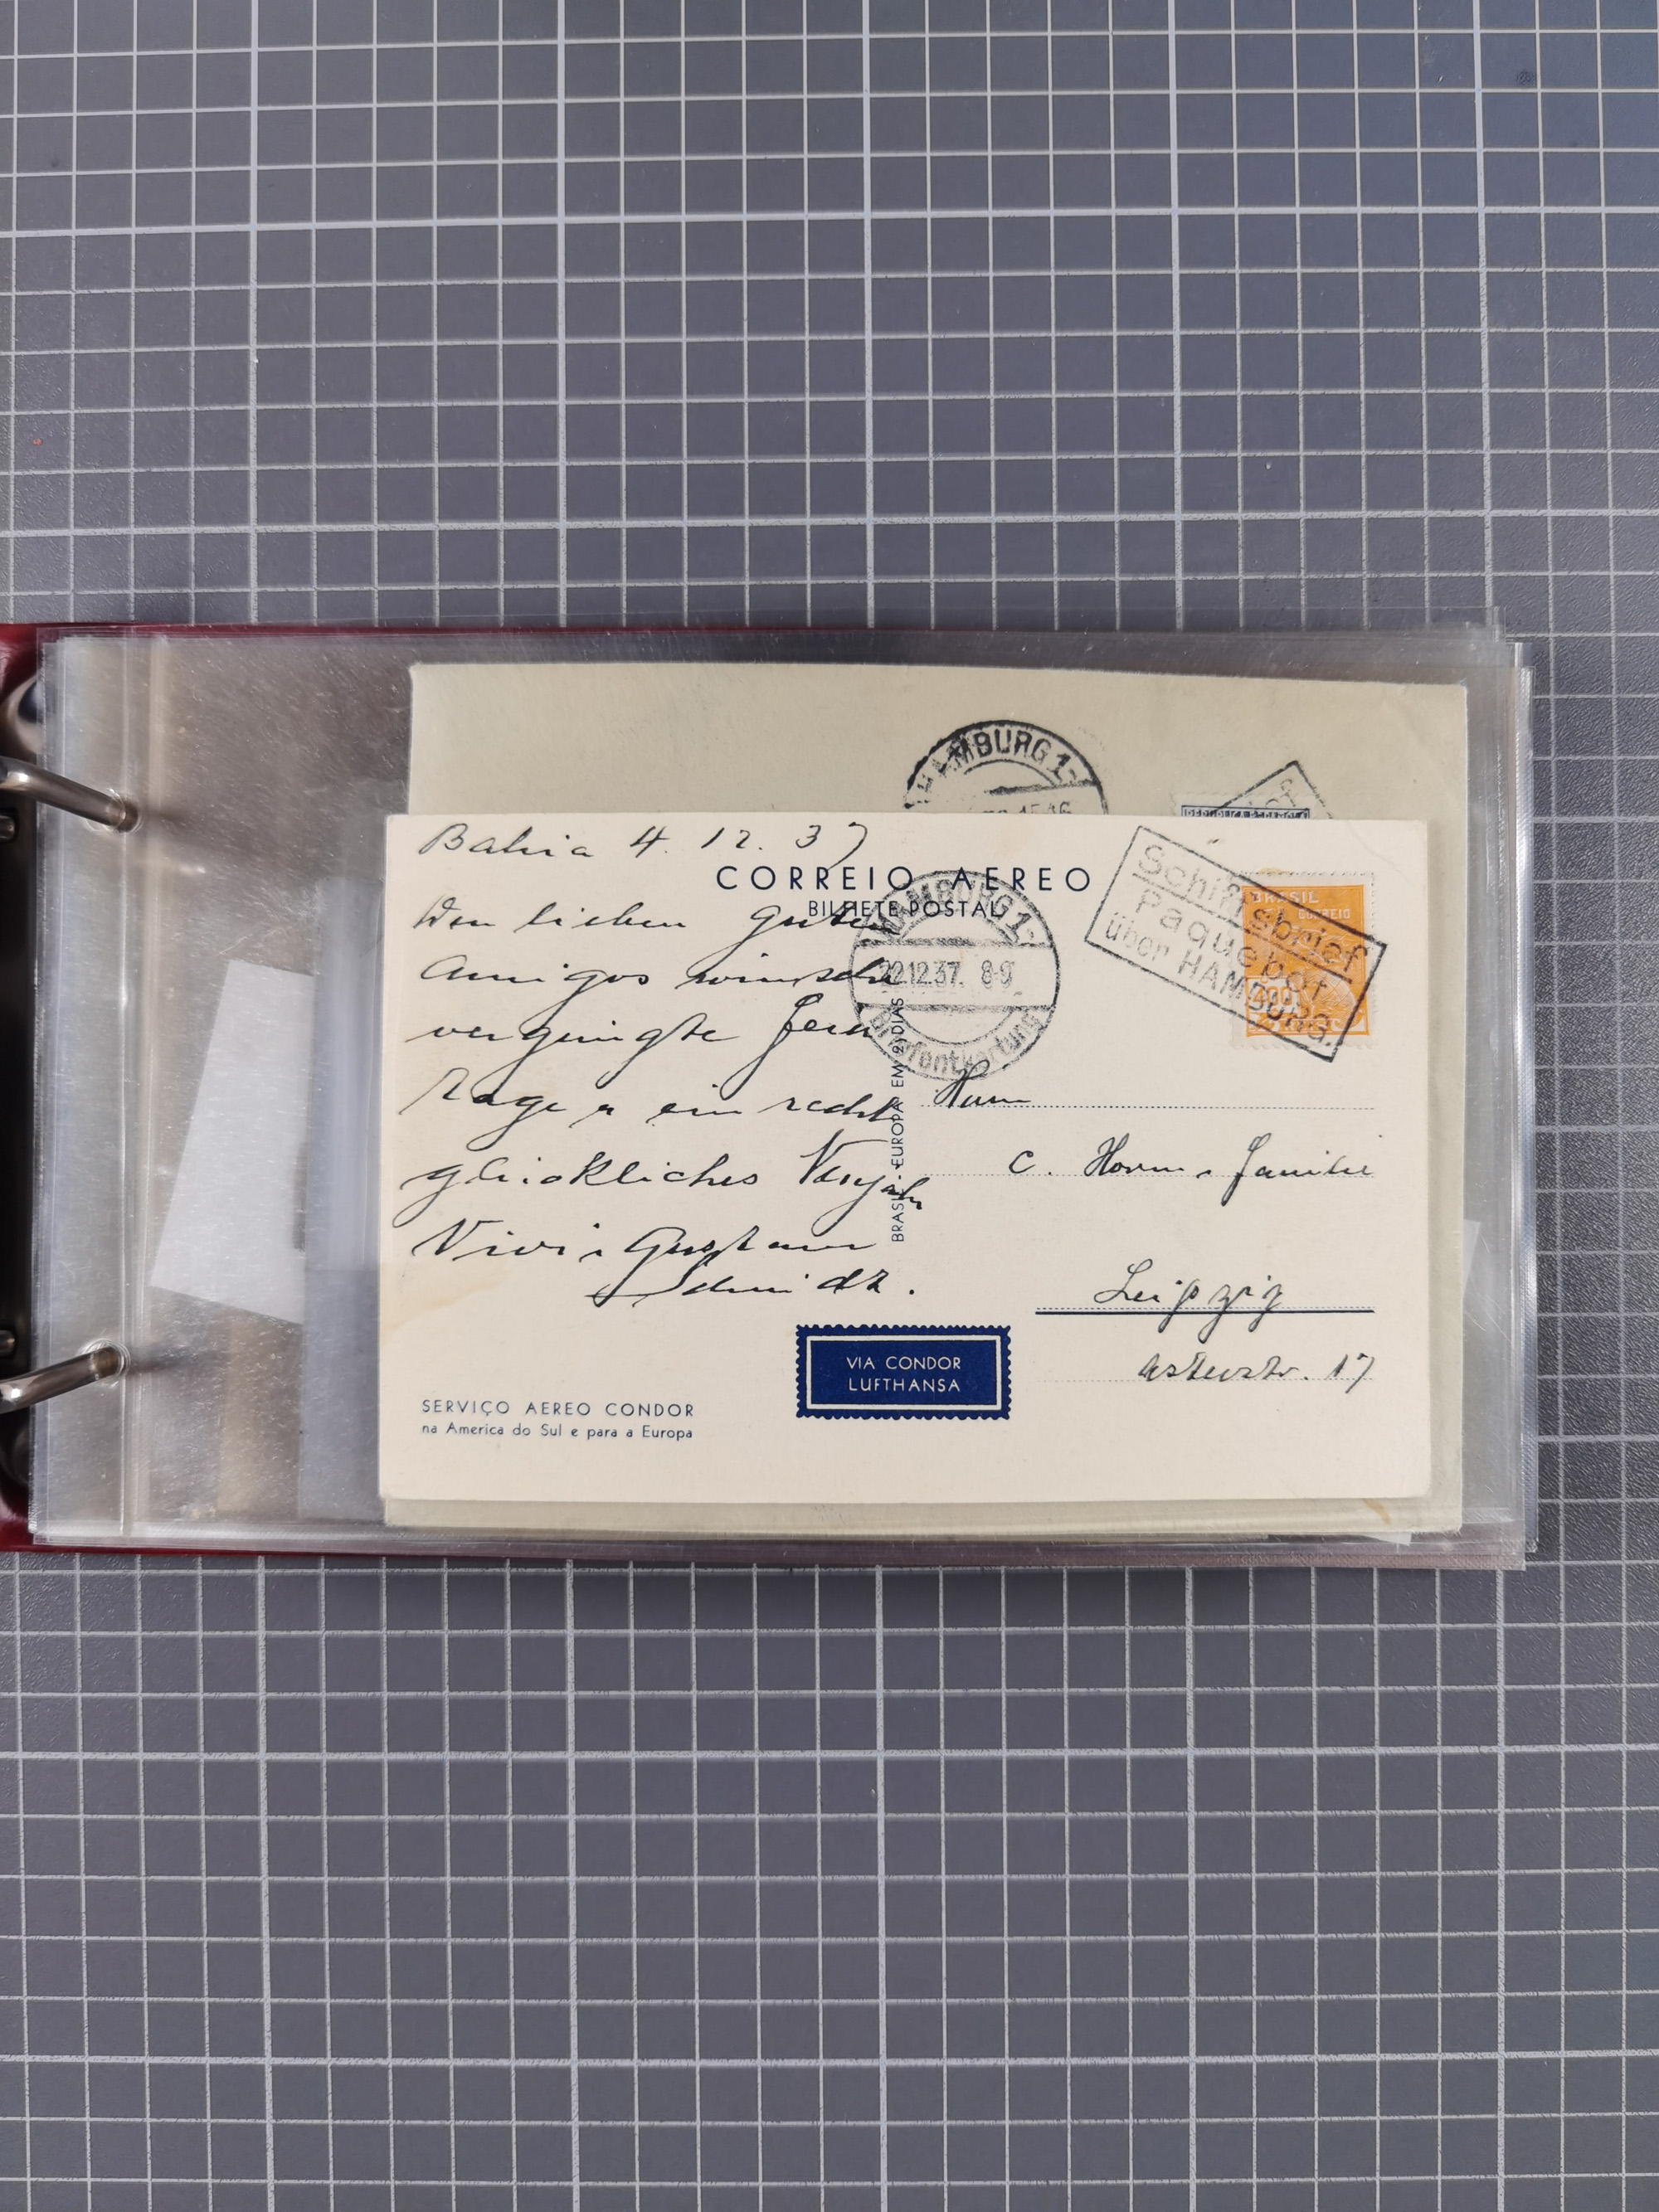 HAMBURG 1
REPUBLICA ESPAÑOLA
Bahia 4. 12. 37
CORREIO AEREO
BILHETE POSTAL
Den lieben guten
Amigos wünschen
vergnügte Feier
Tage u ein recht
glückliches Neujahr
Vivi u Gustav
Schmidt.
HAMBURG 1
22.12.37. 8-9
Briefentkartung
Schiffsbrief
Paquebot
über HAMBURG.
BRASIL
CORREIO
400
BRASIL-EUROPA EM 2 DIAS
C. Horn u Familie
Leipzig
VIA CONDOR
LUFTHANSA
SERVIÇO AEREO CONDOR
na America do Sul e para a Europa
17